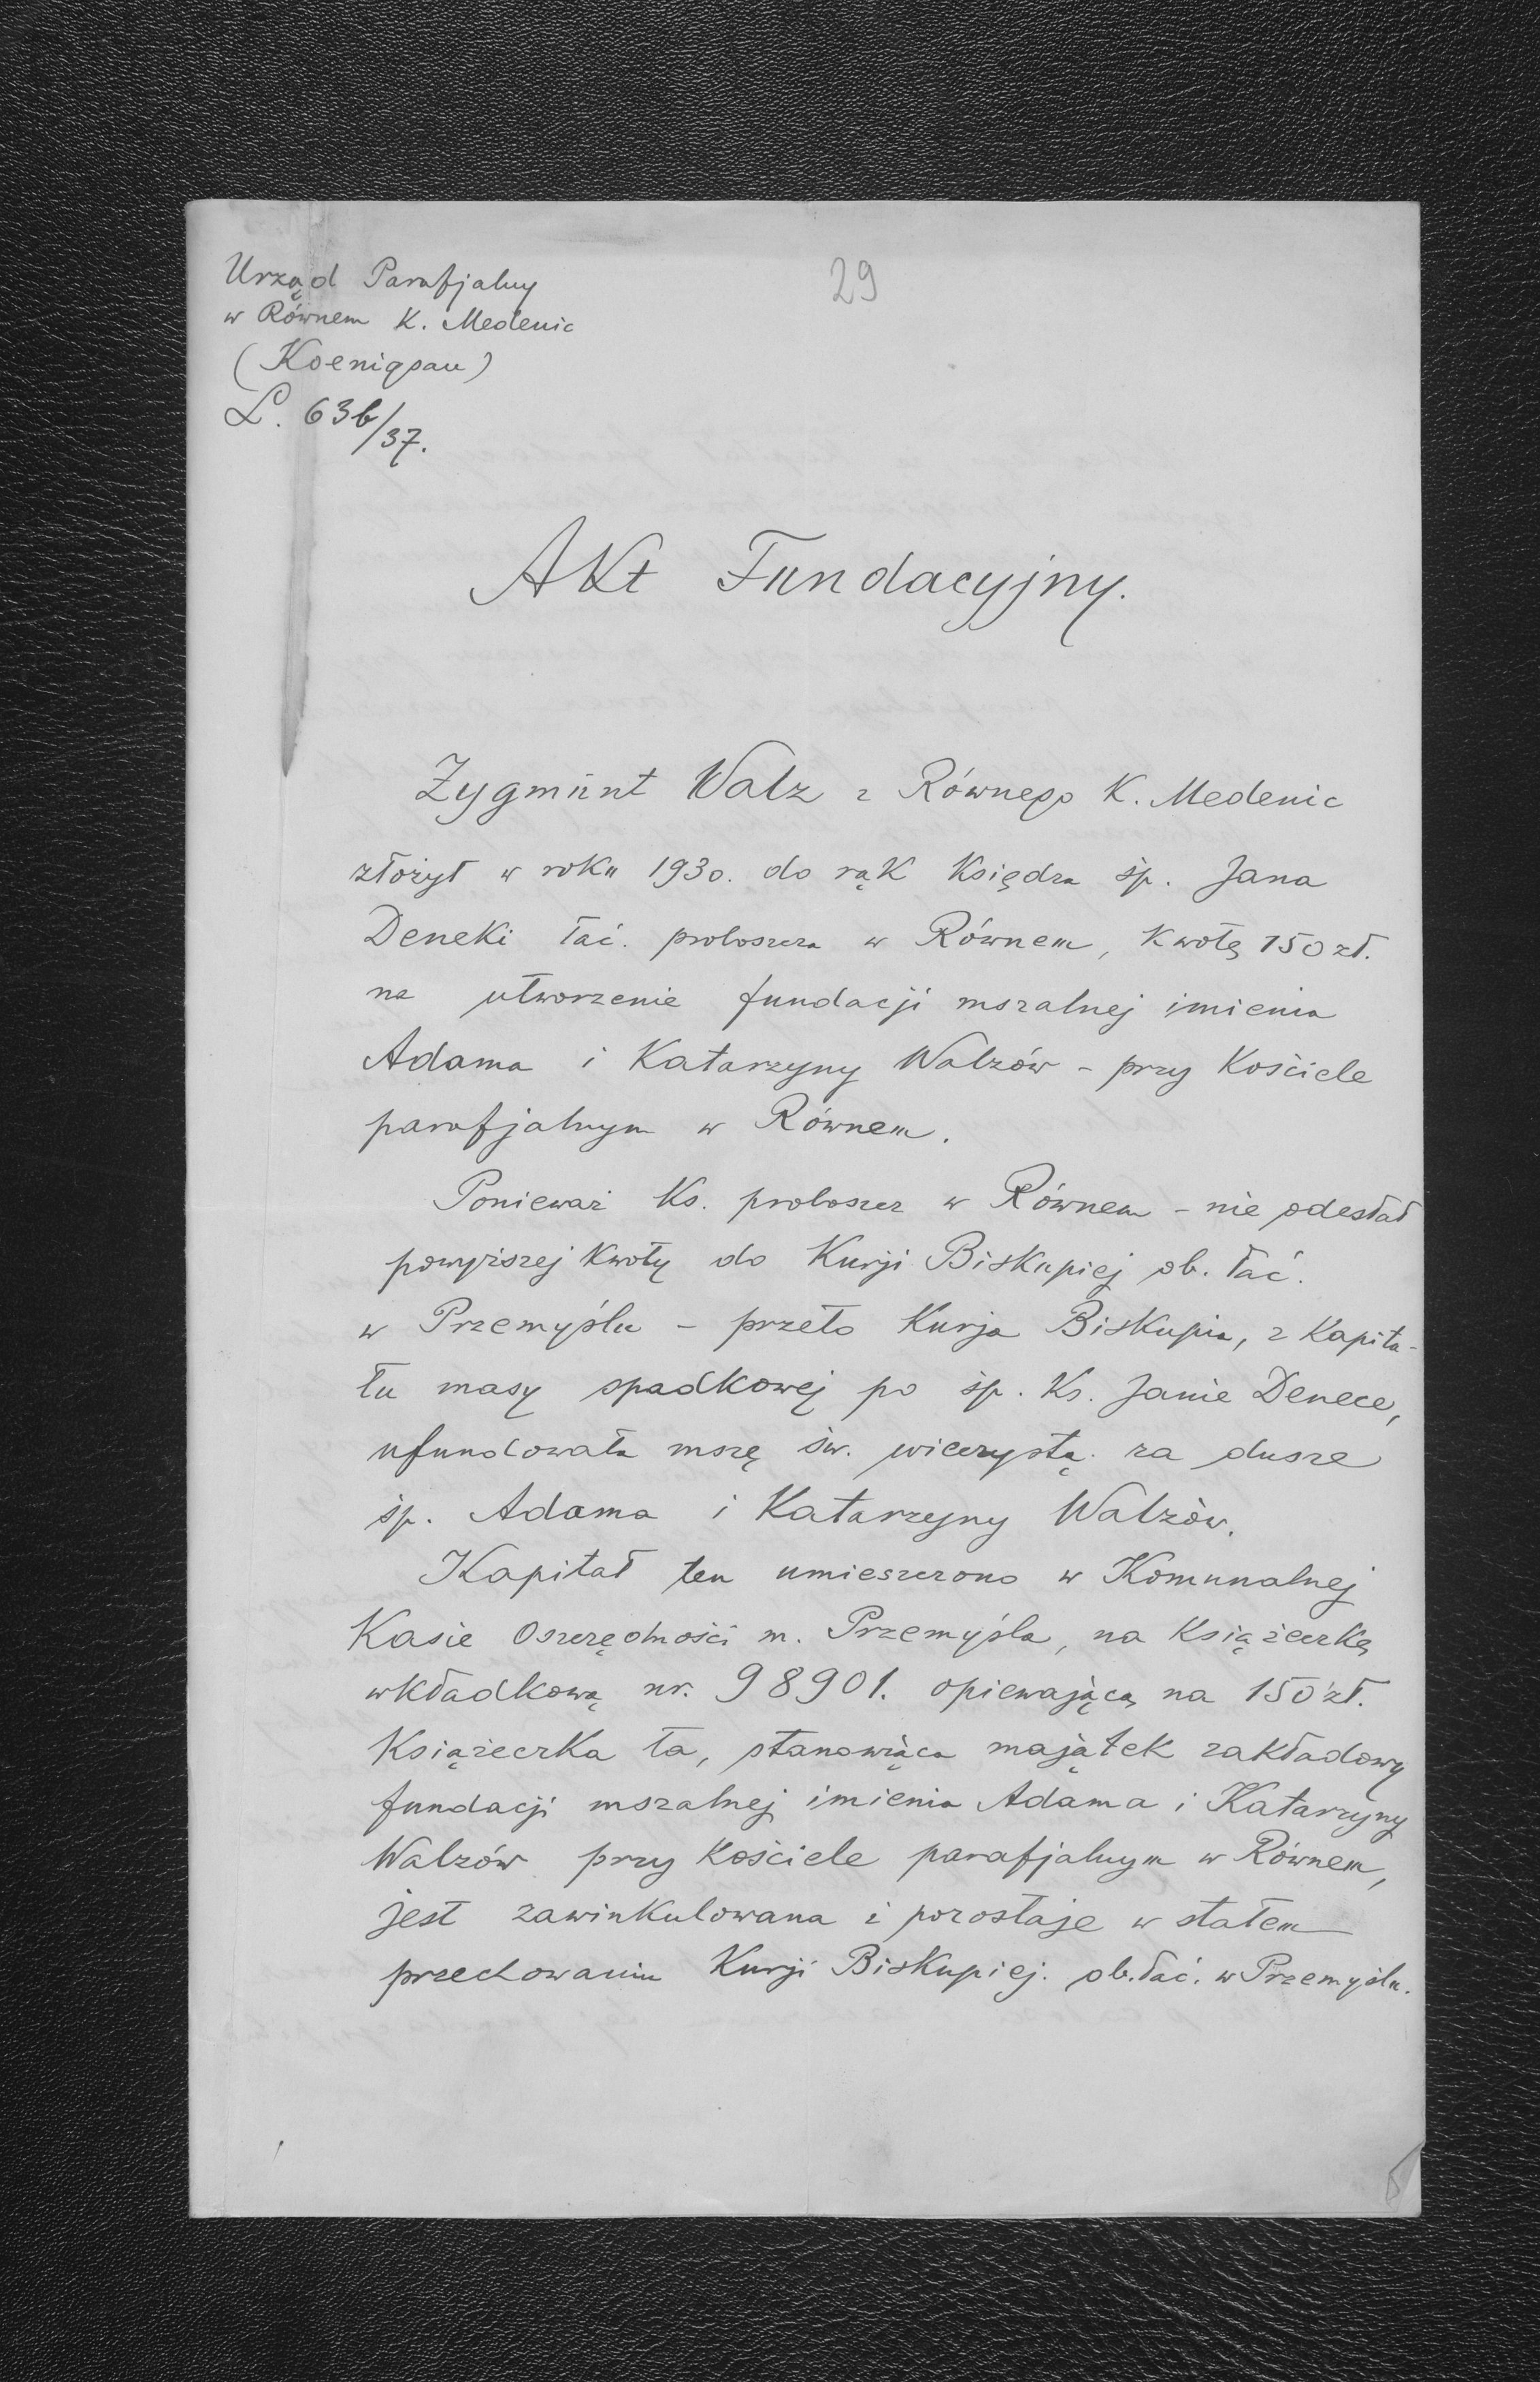 29
Urząd Parafjalny
w Równem k. Medenic
(Koenigsau)
L. 63b/37.
Akt Fundacyjny.
Zygmunt Walz z Równego k. Medenic
złożył w roku 1930. do rąk Księdza śp. Jana
Deneki łać. proboszcza w Równem, kwotę 150 zł.
na utworzenie fundacji mszalnej imienia
Adama i Katarzyny Walzów - przy kościele
parafjalnym w Równem.
Ponieważ ks. proboszcz w Równem - nie odesłał
powyższej kwoty do Kurji Biskupiej ob. łać.
w Przemyślu - przeto Kurja Biskupia, z kapita-
łu masy spadkowej po śp. Ks. Janie Denece,
ufundowała mszę św. wieczystą za dusze
śp. Adama i Katarzyny Walzów.
Kapitał ten umieszczono w Komunalnej
Kasie Oszczędności m. Przemyśla, na książeczkę
wkładkową nr. 98901. opiewającą na 150 zł.
Książeczka ta, stanowiąca majątek zakładowy
fundacji mszalnej imienia Adama i Katarzyny
Walzów przy kościele parafjalnym w Równem,
jest zawinkulowana i pozostaje w stałem
przechowaniu Kurji Biskupiej. ob. łać. w Przemyślu.